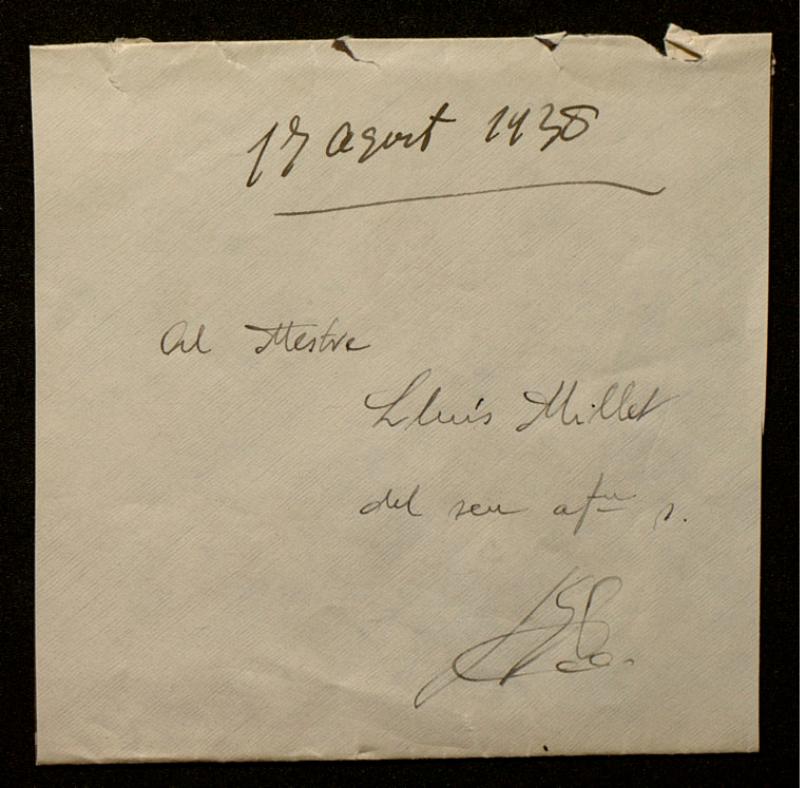 17 agost 1938
Al Mestre
Lluís Millet
del seu afm s.